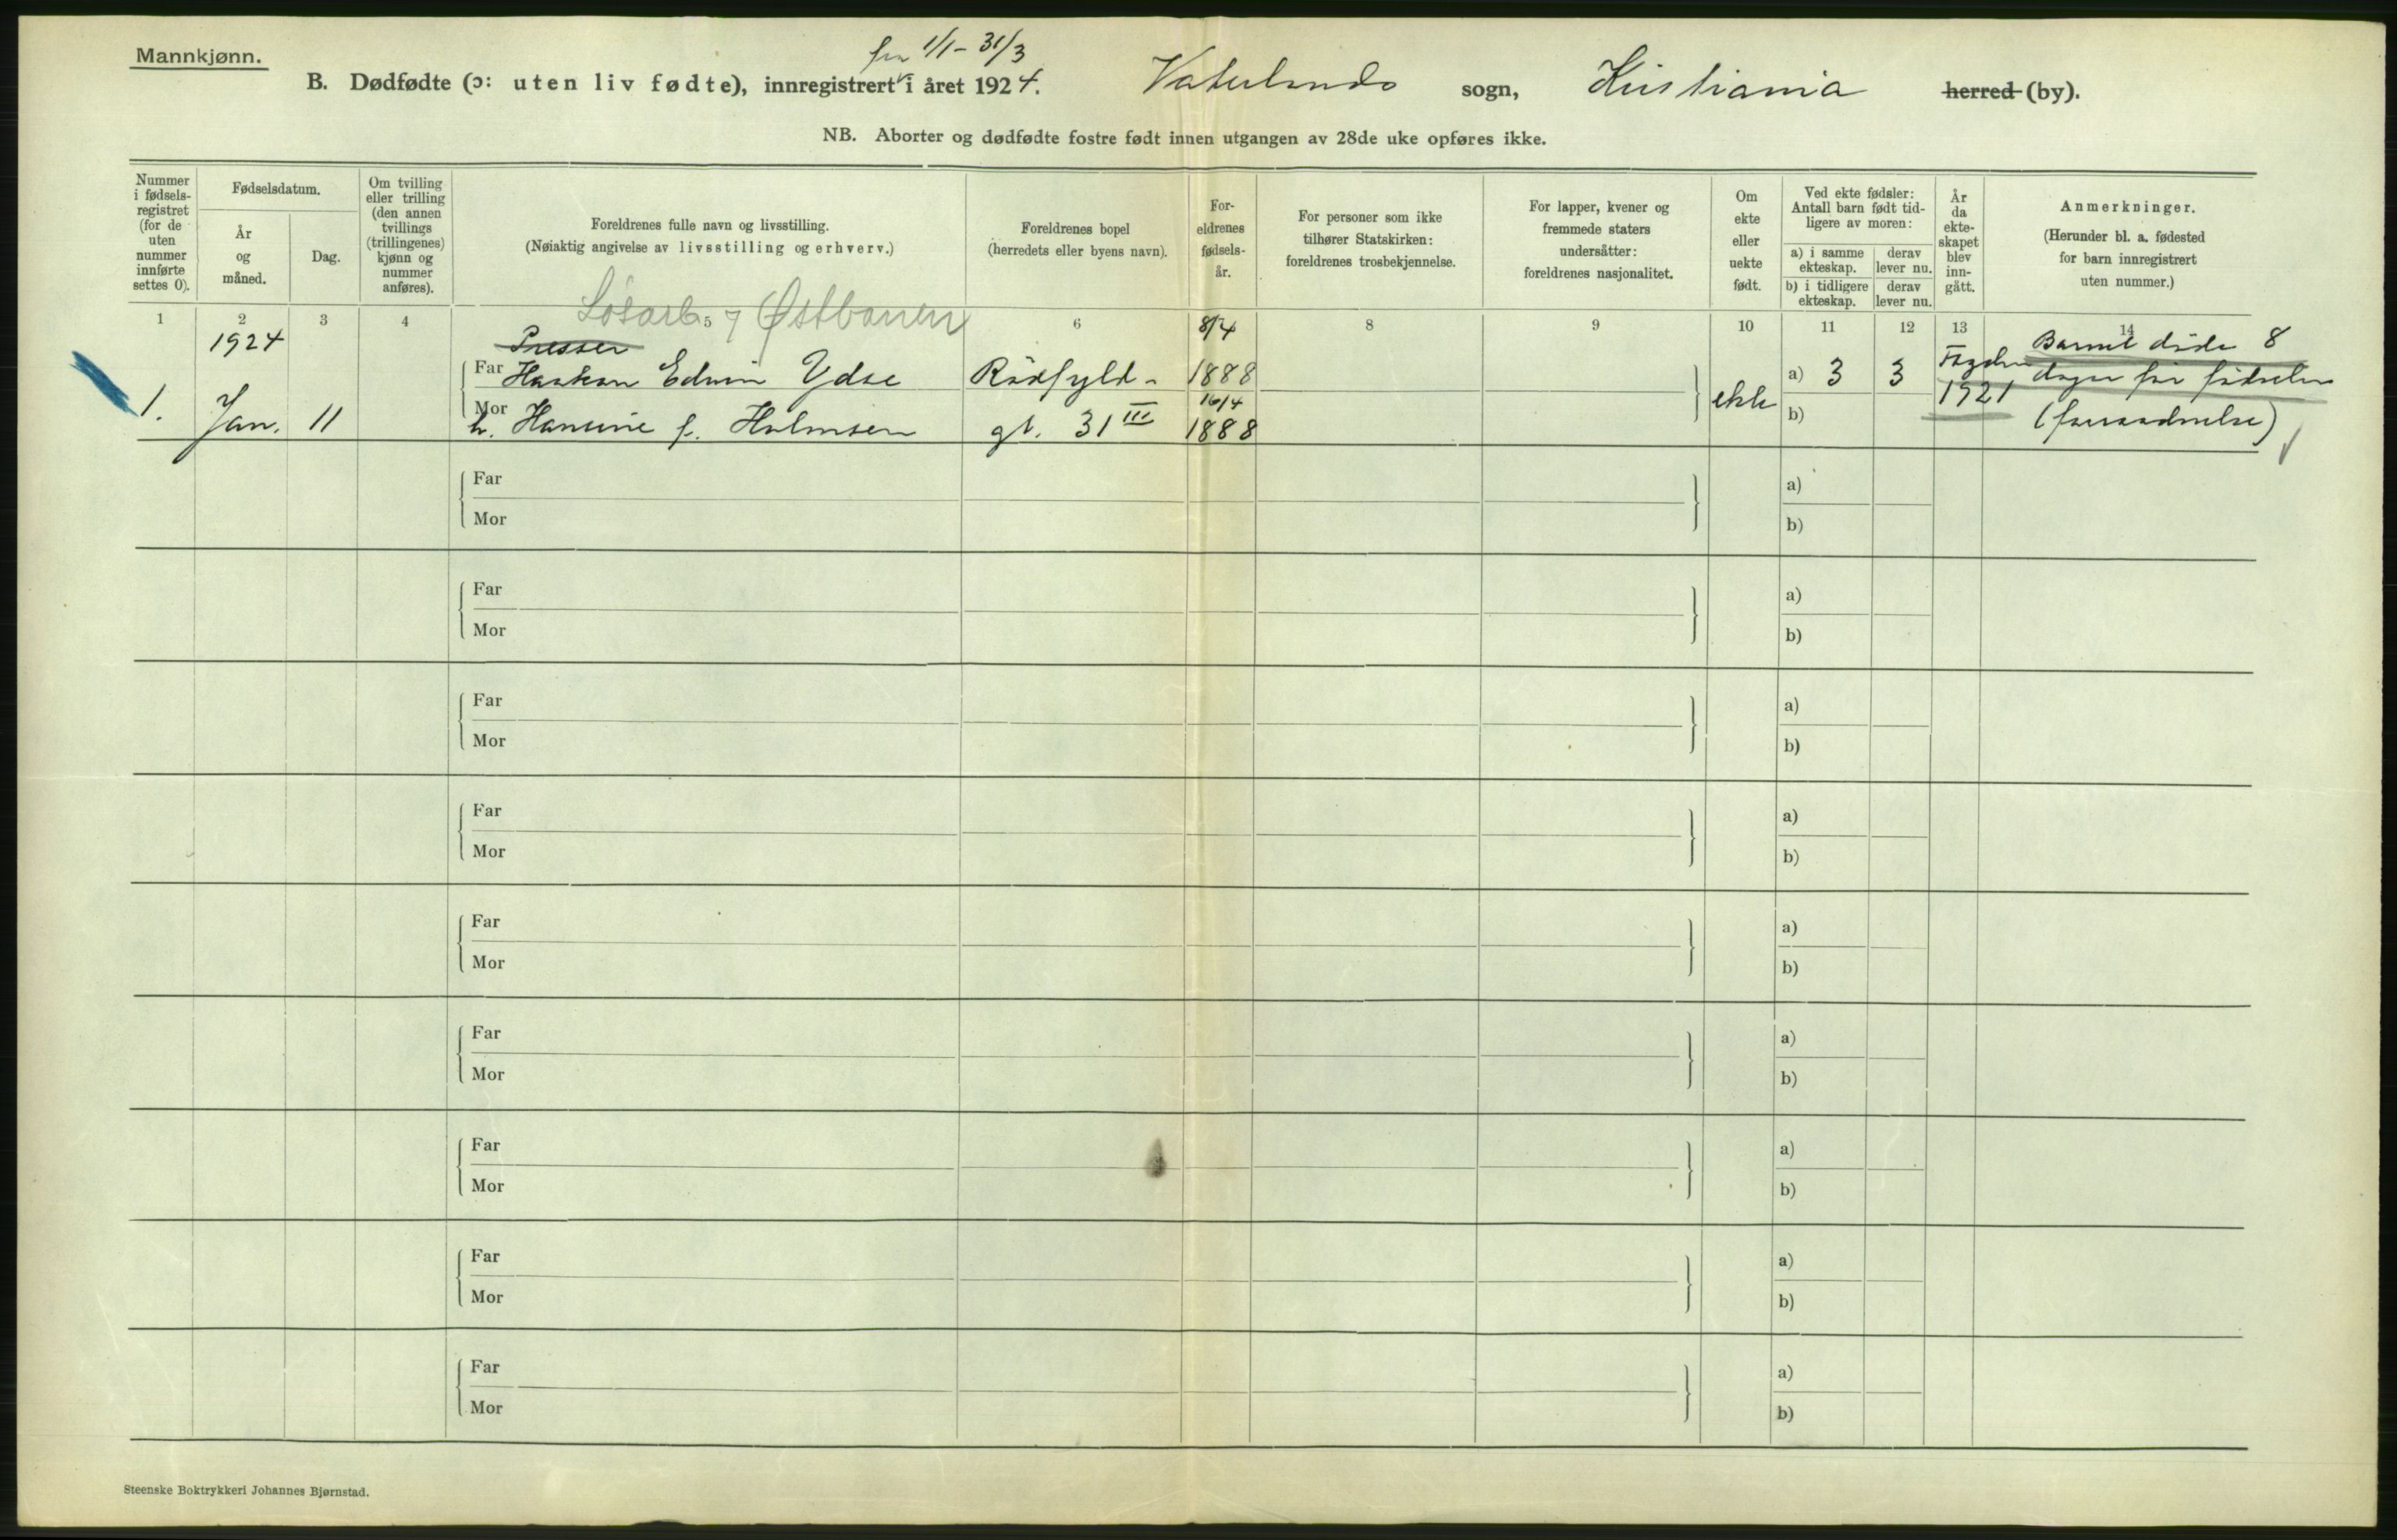 Mannkjønn.
fra 1/1 - 31/3
B. Dødfødte (ɔ: uten liv fødte), innregistrert i året 1924. Vaterlands sogn, Kristiania herred (by).
NB. Aborter og dødfødte fostre født innen utgangen av 28de uke opføres ikke.
Nummer i fødsels- registret (for de uten nummer innførte settes 0).
Fødselsdatum.
År og måned.
Dag.
Om tvilling eller trilling (den annen tvillings (trillingenes) kjønn og nummer anføres).
Foreldrenes fulle navn og livsstilling.
(Nøiaktig angivelse av livsstilling og erhverv.)
Foreldrenes bopel
(herredets eller byens navn).
For- eldrenes fødsels- år.
For personer som ikke tilhører Statskirken: foreldrenes trosbekjennelse.
For lapper, kvener og fremmede staters undersåtter: foreldrenes nasjonalitet.
Om ekte eller uekte født.
Ved ekte fødsler: Antall barn født tid- ligere av moren:
a) i samme ekteskap.
derav lever nu.
b) i tidligere ekteskap.
derav lever nu.
År da ekte- skapet blev inn- gått.
Anmerkninger.
(Herunder bl. a. fødested for barn innregistrert uten nummer.)
Løsarb. Østbanen
1 2 3 4 5 6 7 8 9 10 11 12 13 14
1924
Presser
8/4
Barnet døde 8
Far Haakon Edvin Ydse Rödfyld- 1888 a) 3 3 dager før fødselen
16/4
1921
1. Jan. 11 Mor h. Hansine f. Halmsen gt. 31 III 1888 ekte b) (forraadnelse)
Far a)
Mor b)
Far a)
Mor b)
Far a)
Mor b)
Far a)
Mor b)
Far a)
Mor b)
Far a)
Mor b)
Far a)
Mor b)
Far a)
Mor b)
Far a)
Mor b)
Steenske Boktrykkeri Johannes Bjørnstad.